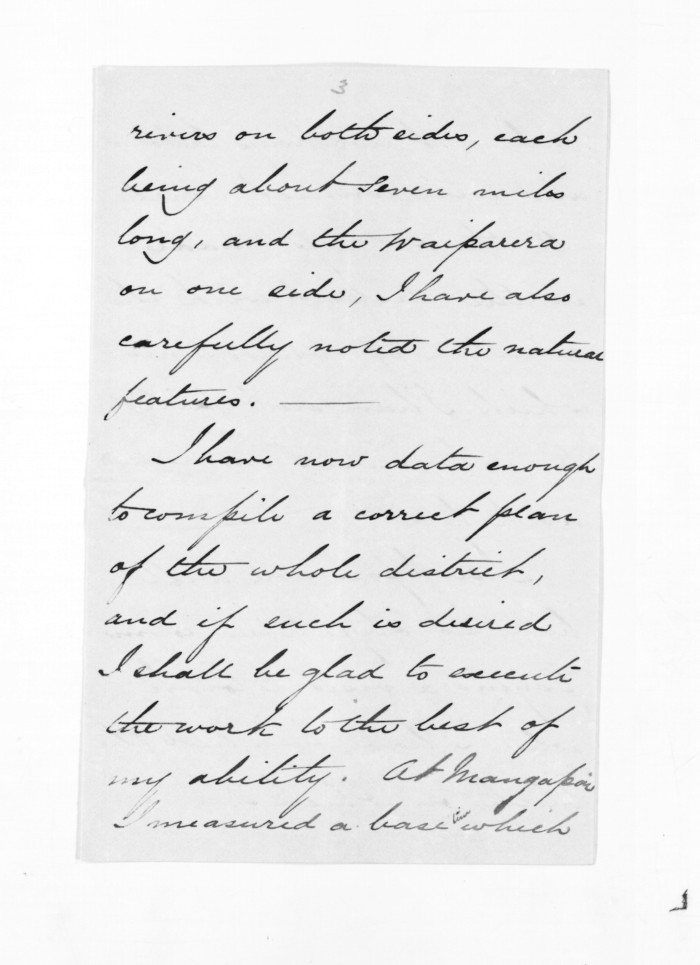 3
rivers on both sides, each
being about seven miles
long, and the Waiparera
on one side, I have also
carefully noted the natural
features. —
I have now data enough
to compile a correct plan
of the whole district,
and if such is desired
I shall be glad to execute
the work to the best of
my ability. At Mangapai
I measured a base line which